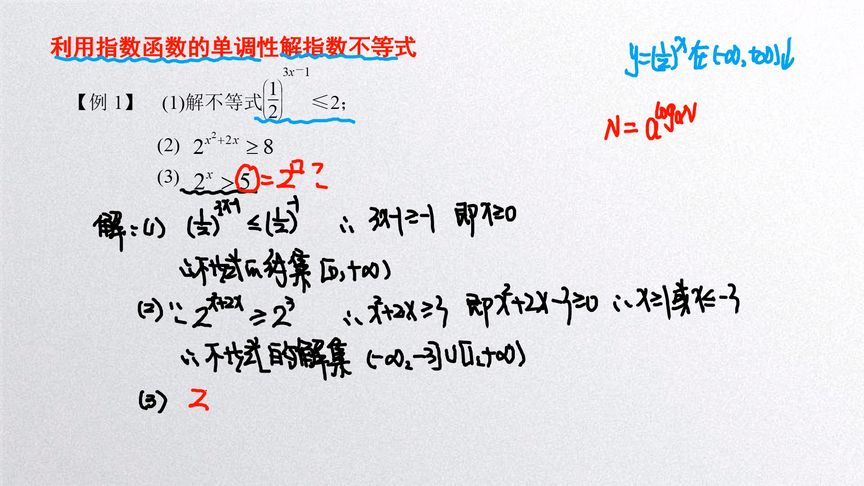 利用指数函数的单调性解指数不等式
y=(1/2)^x在(-∞,+∞)↓
【例 1】 (1)解不等式(1/2)^{3x-1}≤2;
N=a^{log_a N}
(2) 2^{x²+2x}≥8
(3) 2^x>5=2^□?
解:(1) (1/2)^{3x-1}≤(1/2)^{-1} ∴3x-1≥-1 即x≥0
∴不等式的解集[0,+∞)
(2)∵2^{x²+2x}≥2³ ∴x²+2x≥3 即x²+2x-3≥0 ∴x≥1或x≤-3
∴不等式的解集(-∞,-3]∪[1,+∞)
(3) 2